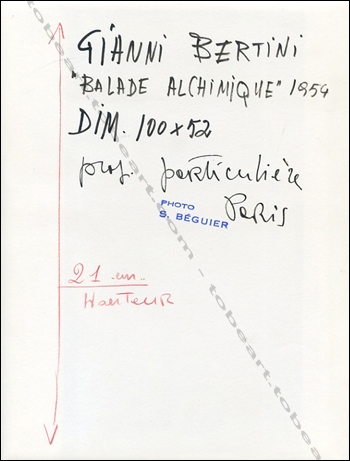 GIANNI BERTINI
"BALADE ALCHIMIQUE" 1959
DIM. 100x52
prof. particulière
Paris
PHOTO
S. BÉGUIER
21 cm
HAUTEUR
tobeart.com - tobeart.com - tobeart.com